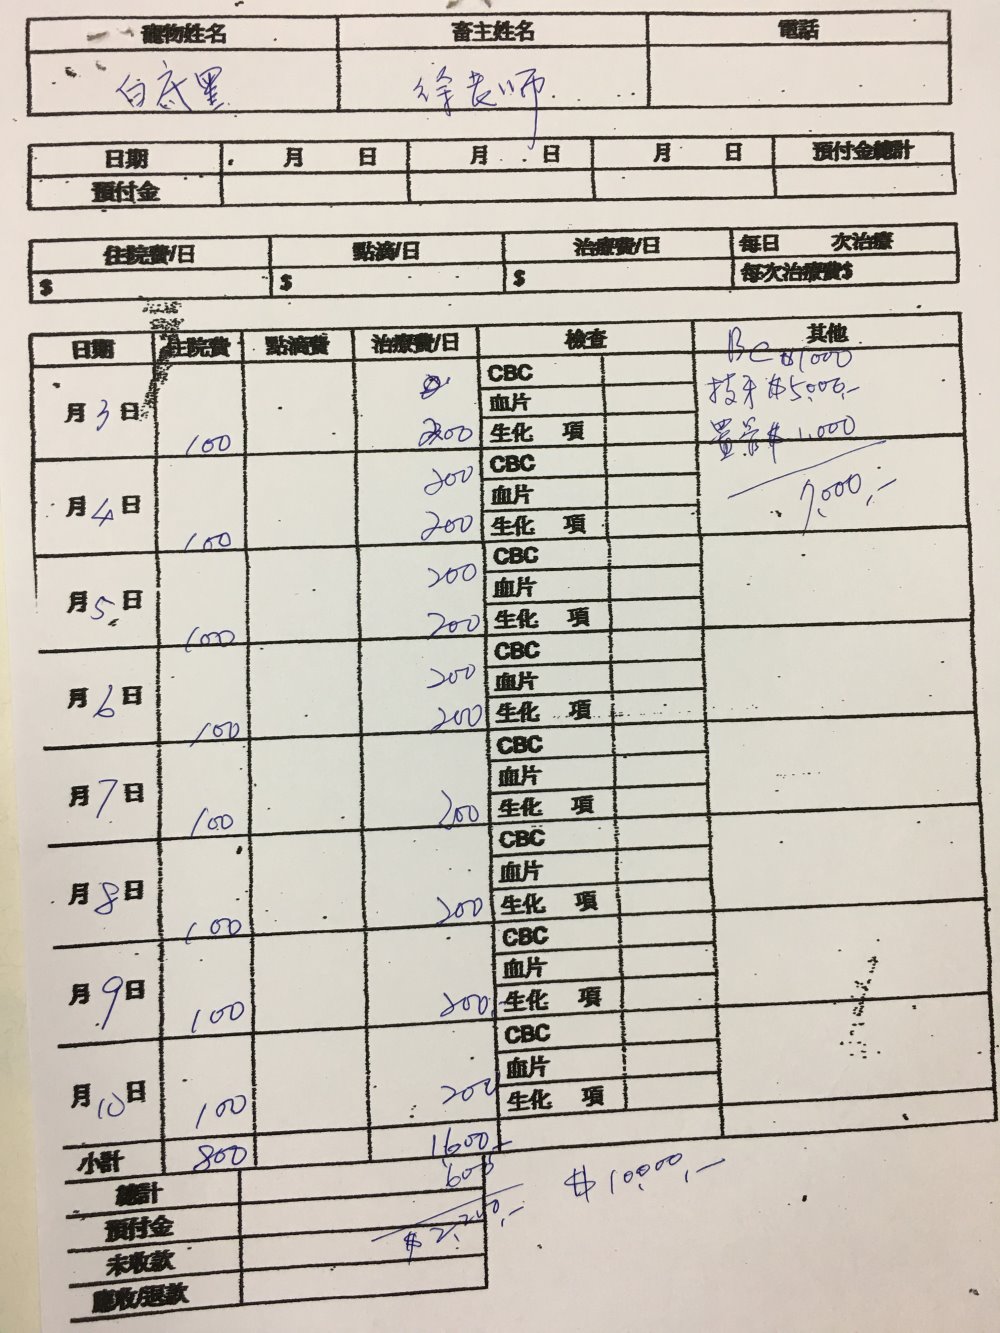 寵物姓名 畜主姓名 電話
白底黑 徐老師
日期 月 日 月 日 月 日 預付金總計
預付金
住院費/日 點滴/日 治療費/日 每日 次治療
$ $ $ 每次治療費$
日期 住院費 點滴費 治療費/日 檢查 其他
BC $1000
CBC
拔牙 $5,000,-
血片
月 3 日 100 200 生化 項
置管 $ 1,000
200 CBC
7,000,-
月 4 日 血片
100 200 生化 項
200 CBC
月 5 日 血片
100 200 生化 項
CBC
月 6 日 200 血片
100 200 生化 項
CBC
月 7 日 血片
100 200 生化 項
CBC
月 8 日 血片
100 200 生化 項
CBC
月 9 日 血片
100 200 生化 項
CBC
月 10 日 血片
100 200 生化 項
小計 800 1600,-
總計 600 $ 10,000,-
預付金
未收款
應收/退款